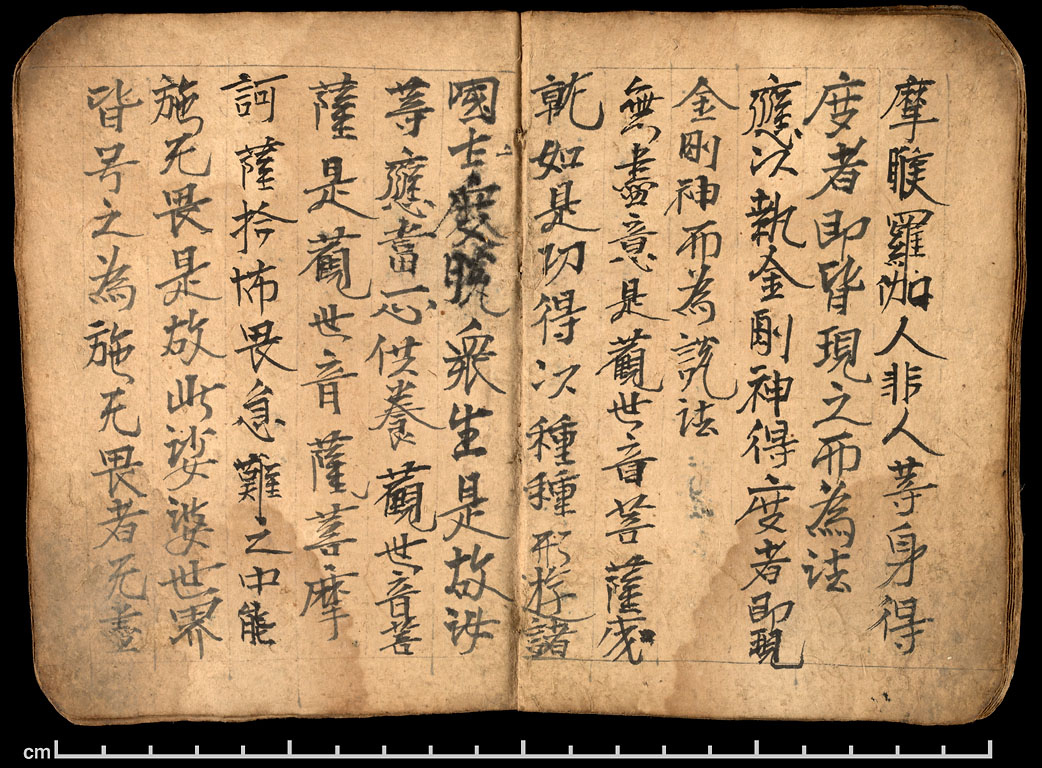 摩睺羅伽人非人等身得
度者即皆現之而為法
應以執金剛神得度者即現
金剛神而為說法
無盡意是觀世音菩薩成
就如是功得以種種形游諸
國土度脫衆生是故汝
等應當一心供養觀世音菩
薩是觀世音薩菩摩
訶薩拾怖畏急難之中能
施无畏是故此娑婆世界
皆号之為施无畏者无盡